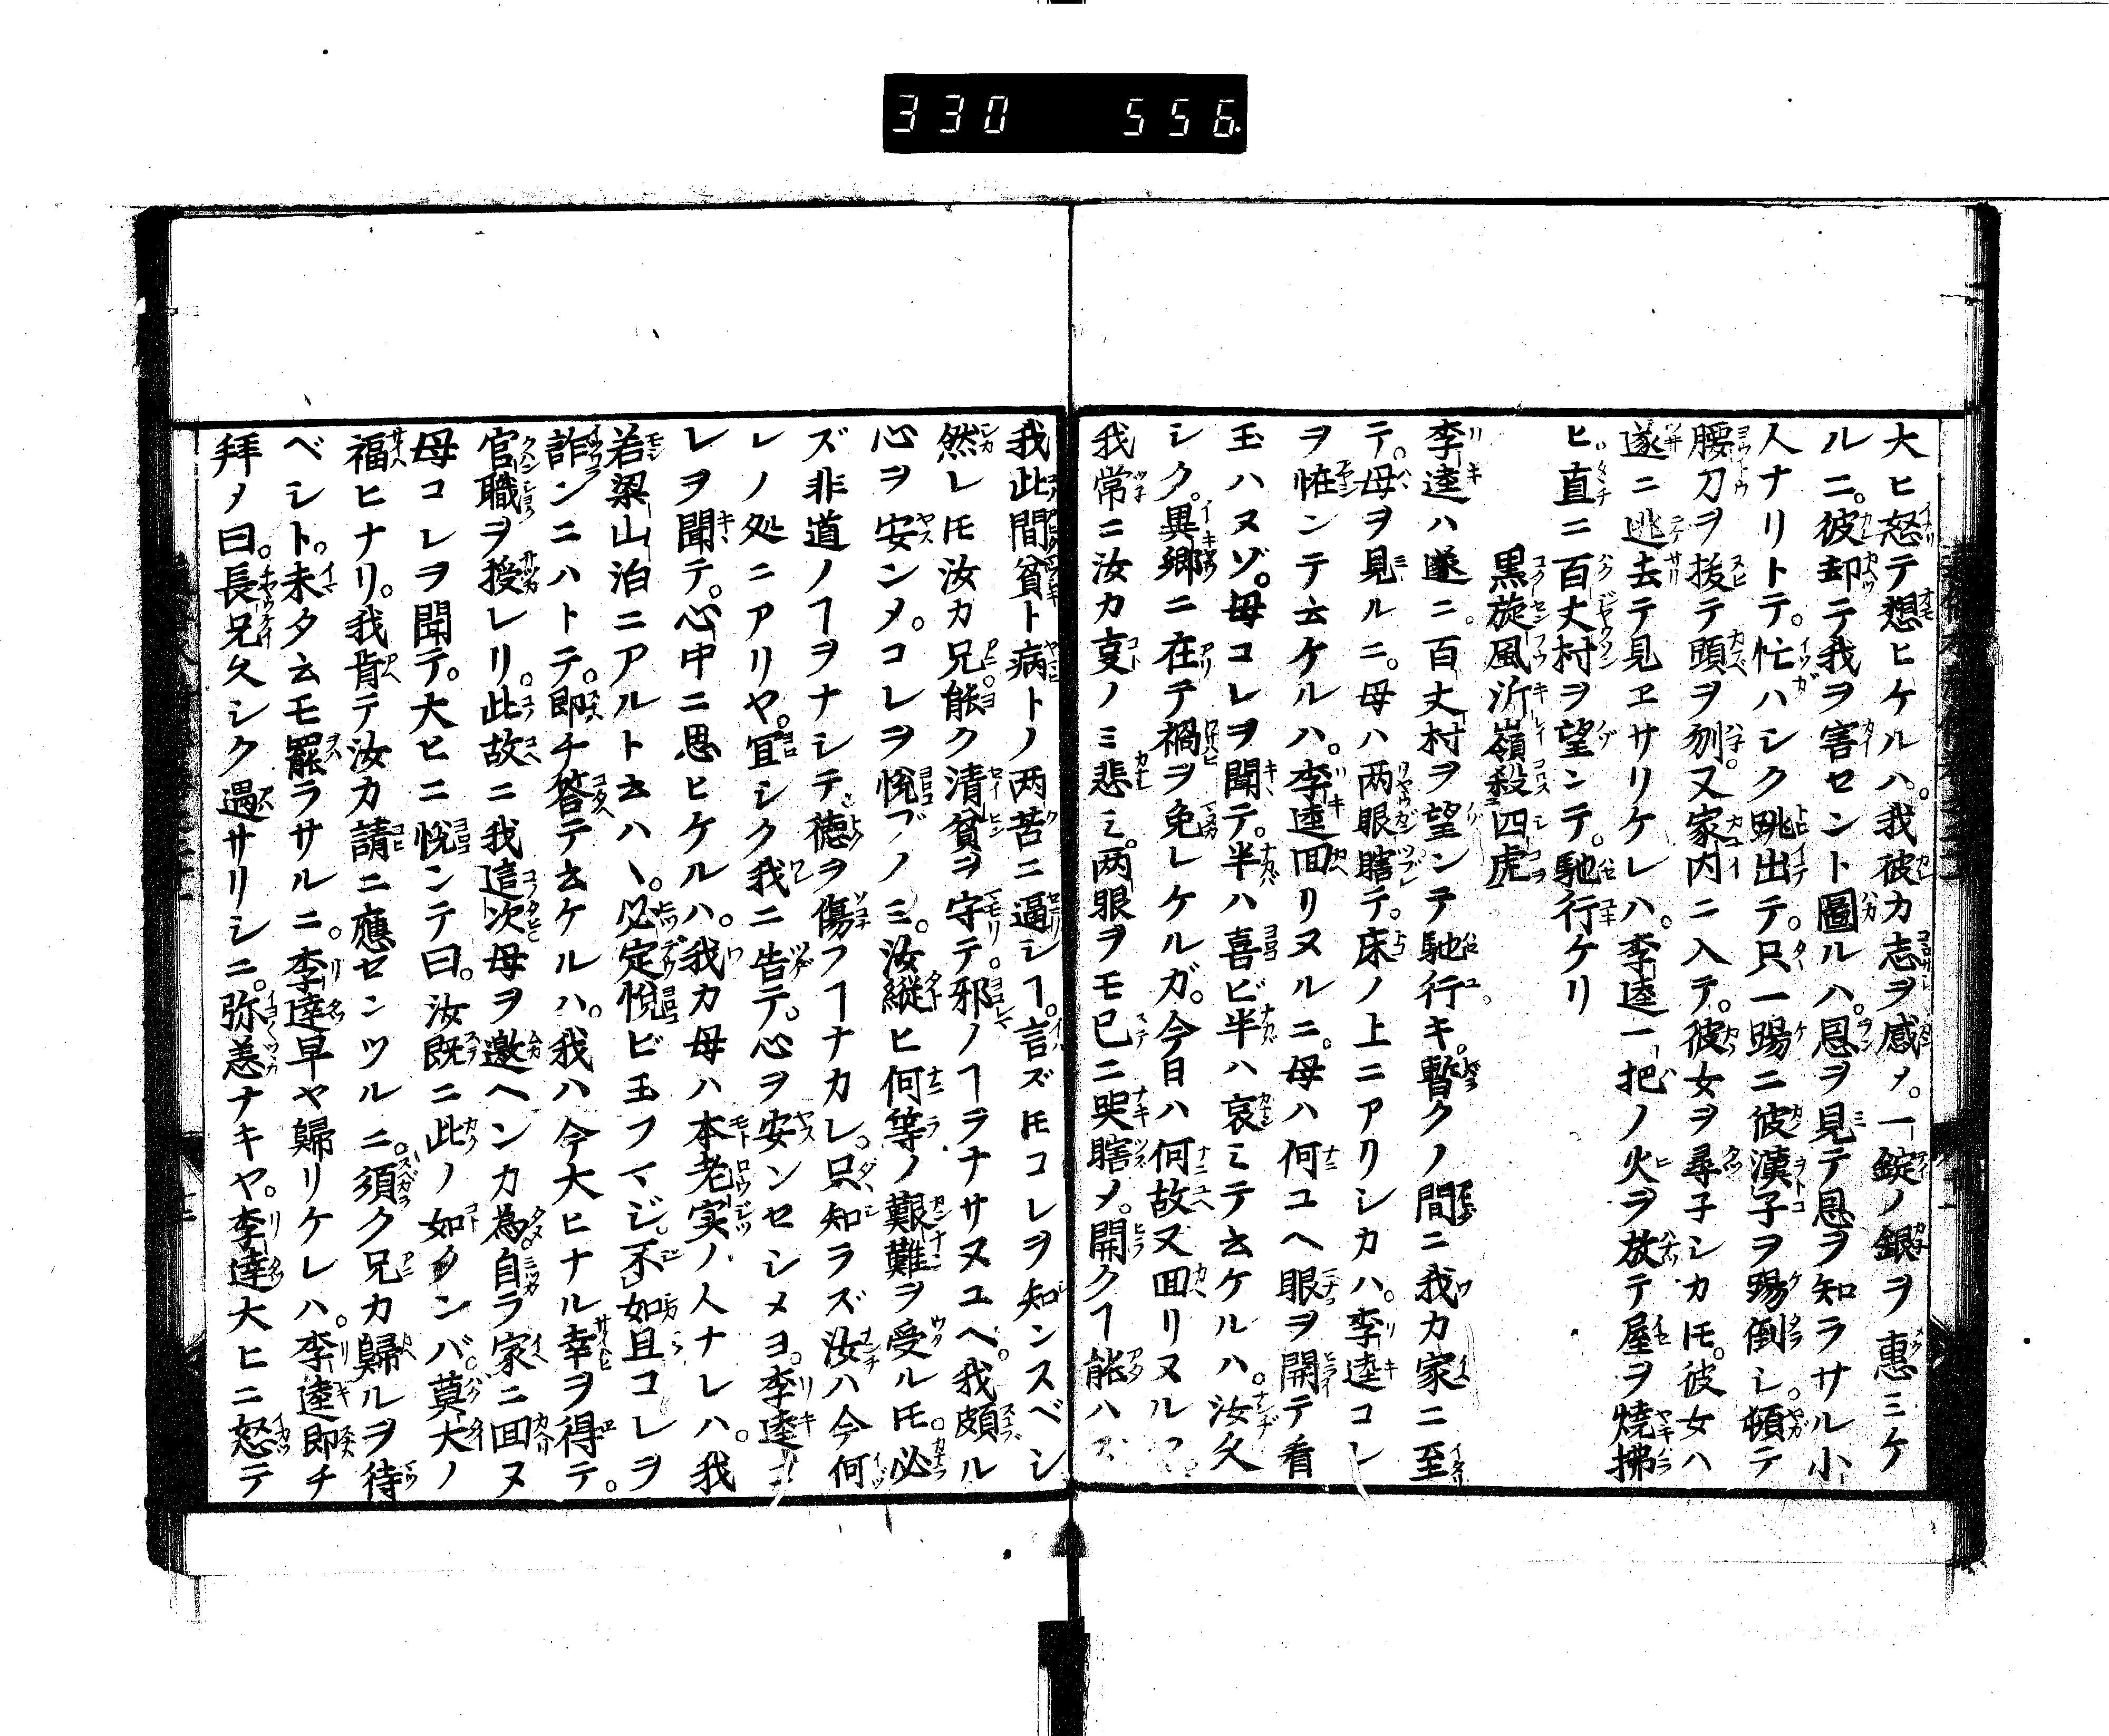 330 556.
大ヒ怒テ想ヒケルハ。我彼カ志ヲ感メ。一錠ノ銀ヲ惠ミケ
ルニ。彼却テ我ヲ害セント圖ルハ。恩ヲ見テ恩ヲ知ラサル小
人ナリトテ。忙ハシク跳出テ。只一踢ニ彼漢子ヲ踢倒シ。頓テ
腰刀ヲ拔テ頭ヲ刎。又家内ニ入テ。彼女ヲ尋子シカ𪜈。彼女ハ
遂ニ逃去テ見ヱサリケレハ。李逵一把ノ火ヲ放テ屋ヲ燒拂
ヒ。直ニ百丈村ヲ望ンテ。馳行ケリ
黒旋風沂嶺殺四虎
李逵ハ遂ニ百丈村ヲ望ンテ馳行キ。暫クノ間ニ我カ家ニ至
テ。母ヲ見ルニ。母ハ两眼瞎テ。床ノ上ニアリシカハ。李逵コレ
ヲ恠ンテ云ケルハ。李逵囬リヌルニ。母ハ何ユヘ眼ヲ開テ看
玉ハヌゾ。母コレヲ聞テ。半ハ喜ビ半ハ哀ミテ云ケルハ。汝久
シク。異郷ニ在テ禍ヲ免レケルガ。今日ハ何故又囬リヌル
我常ニ汝カ叓ノミ悲ミ。两眼ヲモ已ニ哭瞎メ。開クヿ能ハズ
我此間貧ト病トノ两苦ニ逼シヿ。言ズ𪜈コレヲ知ンスベシ
然レ𪜈汝カ兄能ク清貧ヲ守テ。邪ノヿヲナサヌユヘ。我頗ル
心ヲ安ンメ。コレヲ悅ブノミ。汝縦ヒ何等ノ艱難ヲ受ル𪜈。必
ズ非道ノヿヲナシテ德ヲ傷フヿナカレ。只知ラズ汝ハ今何
レノ処ニアリヤ。宜シク我ニ告テ。心ヲ安ンセシメヨ。李逵コ
レヲ聞テ。心中ニ思ヒケルハ。我カ母ハ本老実ノ人ナレハ。我
若梁山泊ニアルト云ハヽ。必定悅ビ玉フマジ。不如且コレヲ
詐ンニハトテ。即チ答テ云ケルハ。我ハ今大ヒナル幸ヲ得テ。
官職ヲ授レリ。此故ニ我這次母ヲ邀ヘンカ為。自ラ家ニ囬ヌ
母コレヲ聞テ。大ヒニ悅ンテ曰。汝既ニ此ノ如クンバ。莫大ノ
福ヒナリ。我肯テ汝カ請ニ應センツルニ。須ク兄カ歸ルヲ待
ベシト。未タ云モ罷ラサルニ。李達早ヤ歸リケレハ。李逵即チ
拜メ曰。長兄久シク遇サリシニ。弥恙ナキヤ。李達大ヒニ怒テ